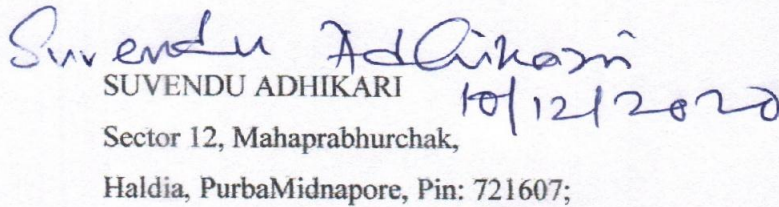 Suvendu Adhikari
SUVENDU ADHIKARI
10/12/2020
Sector 12, Mahaprabhurchak,
Haldia, PurbaMidnapore, Pin: 721607;